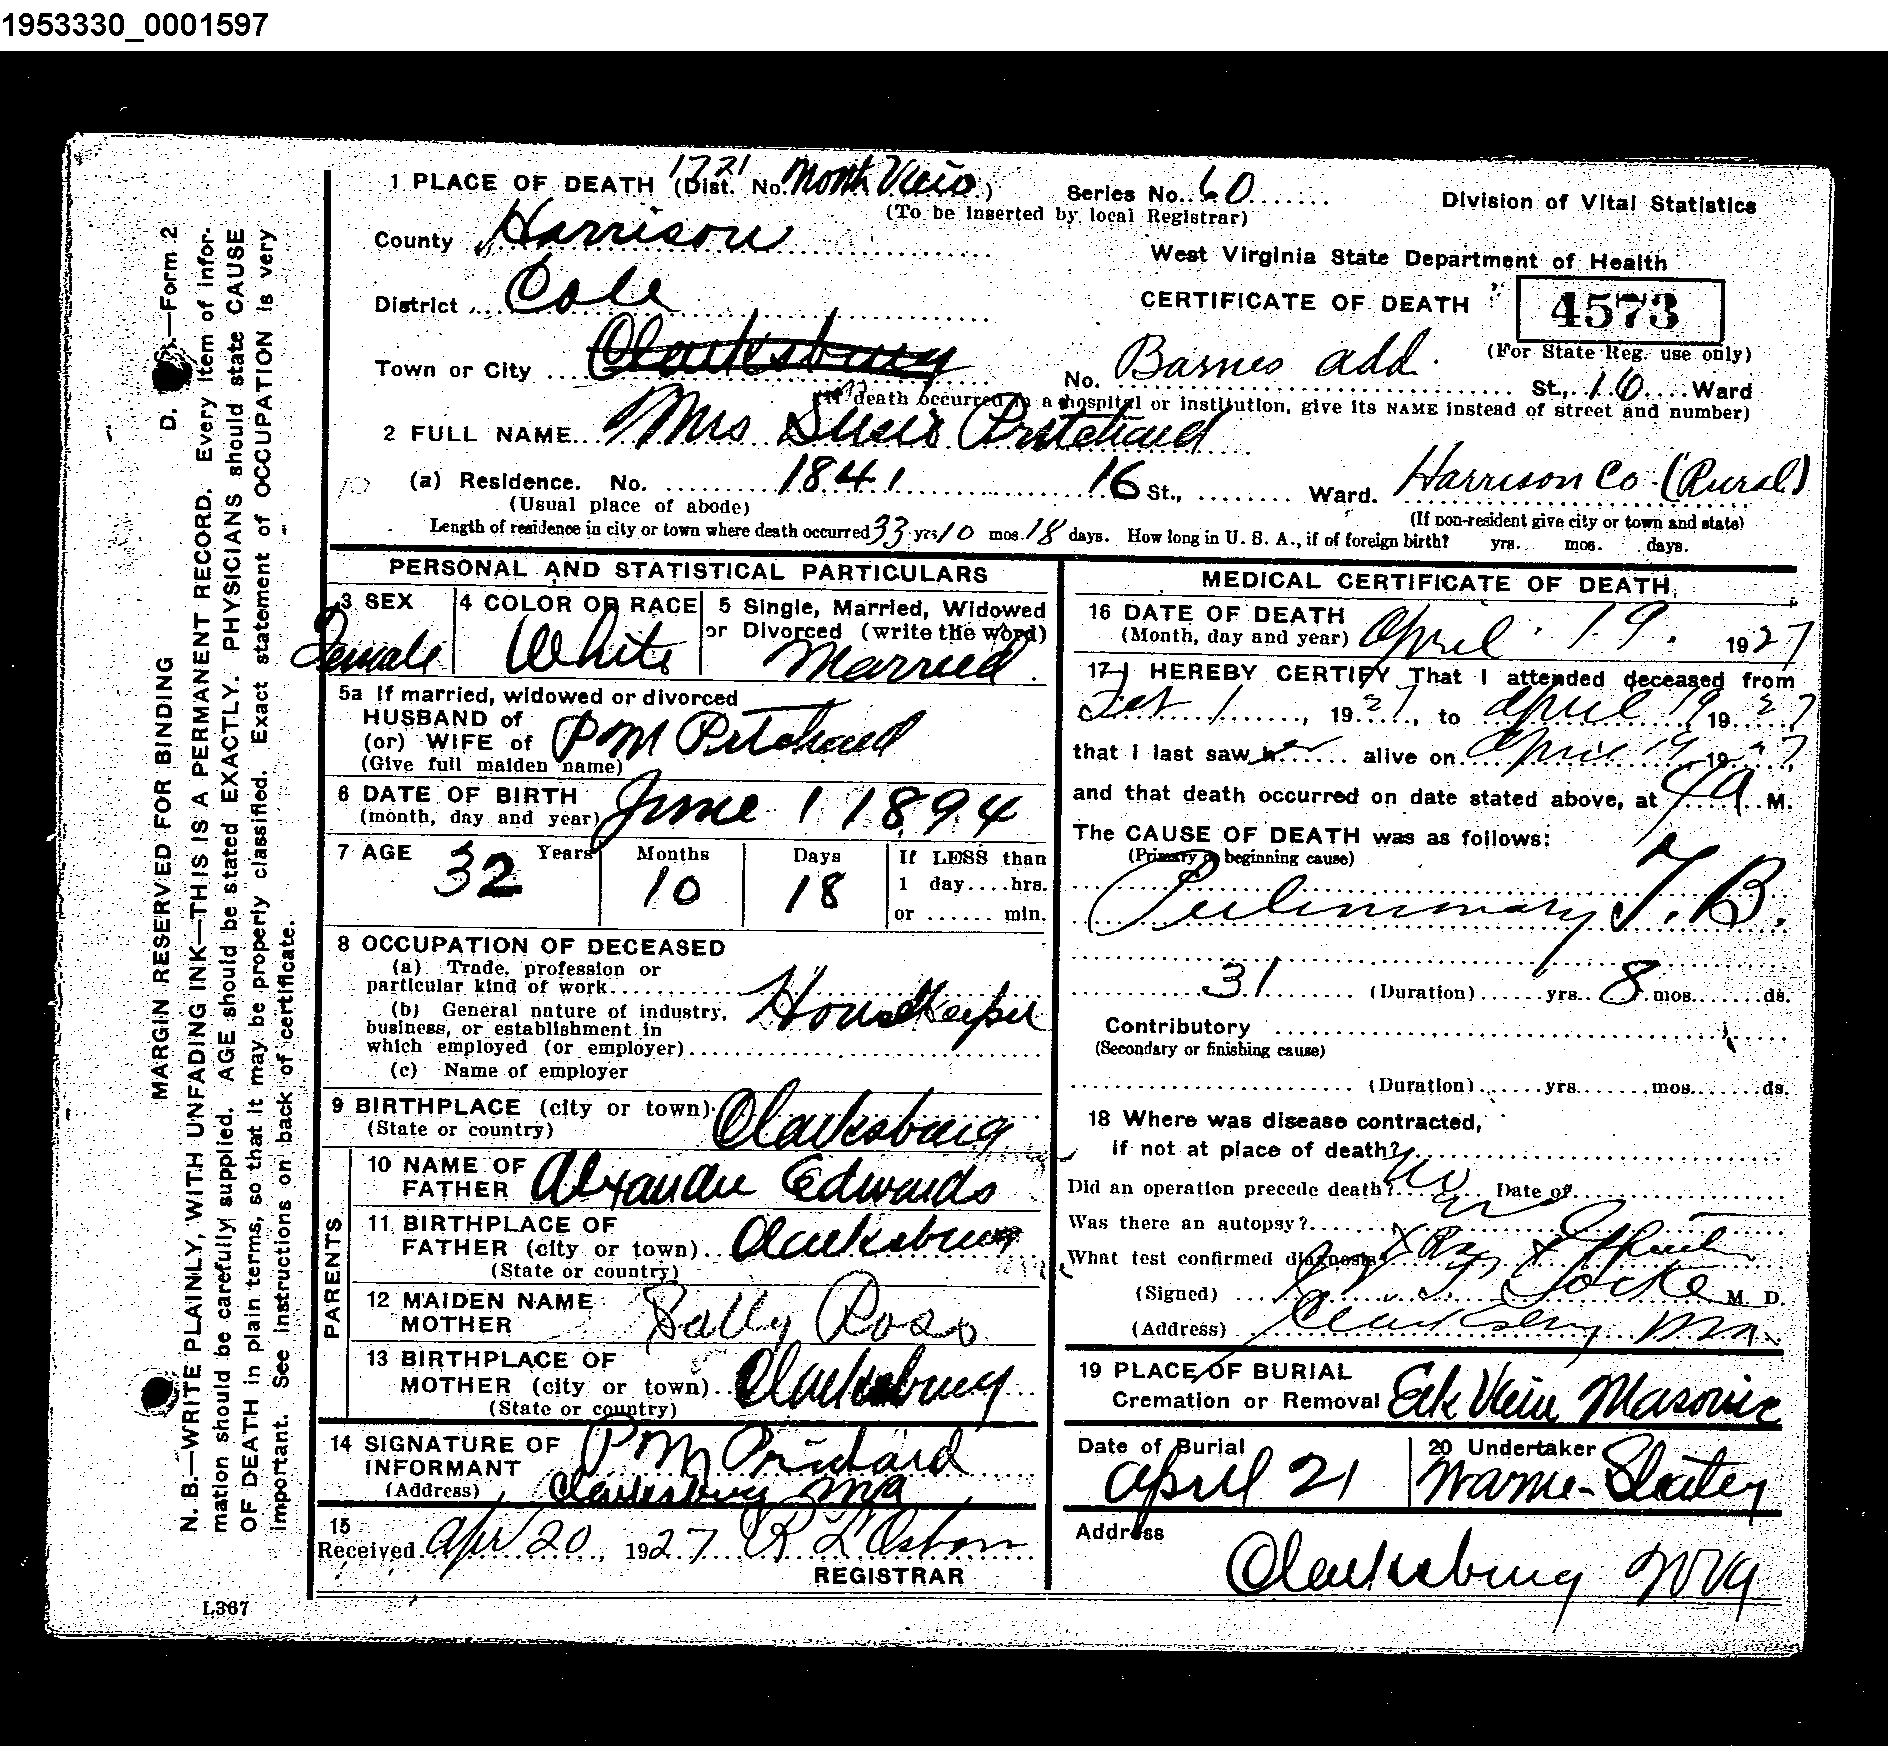 1953330_0001597
1 PLACE OF DEATH (Dist. No. Month Vein.) Series No. 60 Division of Vital Statistics
1721
(To be inserted by local Registrar)
County Harrison
West Virginia State Department of Health
District Cole CERTIFICATE OF DEATH 4573
(For State Reg. use only)
Town or City Clarksburg No. Barnes add. St., 16 Ward
(If death occurred in a hospital or institution, give its NAME instead of street and number)
2 FULL NAME Mrs Susie Pritchard
(a) Residence. No. 1841 16 St., Ward. Harrison Co (Rural)
(Usual place of abode) (If non-resident give city or town and state)
Length of residence in city or town where death occurred 33 yrs 10 mos. 18 days. How long in U. S. A., if of foreign birth? yrs. mos. days.
PERSONAL AND STATISTICAL PARTICULARS
3 SEX 4 COLOR OR RACE 5 Single, Married, Widowed
or Divorced (write the word)
Female White Married
5a If married, widowed or divorced
HUSBAND of
(or) WIFE of P M Pritchard
(Give full maiden name)
6 DATE OF BIRTH
(month, day and year) June 1 1894
7 AGE Years Months Days If LESS than
32 10 18 1 day....hrs.
or ...... min.
8 OCCUPATION OF DECEASED
(a) Trade, profession or
particular kind of work
(b) General nature of industry,
business, or establishment in
which employed (or employer)
Housekeeper
(c) Name of employer
9 BIRTHPLACE (city or town) Clarksburg
(State or country)
PARENTS
10 NAME OF
FATHER Alexander Edwards
11 BIRTHPLACE OF
FATHER (city or town) Clarksburg
(State or country)
12 MAIDEN NAME
MOTHER Sally Ross
13 BIRTHPLACE OF
MOTHER (city or town) Clarksburg
(State or country)
14 SIGNATURE OF
INFORMANT P M Prichard
(Address) Clarksburg WVa
15
Received Apr 20, 1927 R L Osborn
REGISTRAR
MEDICAL CERTIFICATE OF DEATH
16 DATE OF DEATH
(Month, day and year) April 19. 1927
17 I HEREBY CERTIFY That I attended deceased from
1, 1927, to April 19 1927
that I last saw her alive on April 19 1927
and that death occurred on date stated above, at M.
The CAUSE OF DEATH was as follows:
(Primary or beginning cause)
T.B.
31 (Duration) yrs. 8 mos. ds.
Contributory
(Secondary or finishing cause)
(Duration) yrs. mos. ds.
18 Where was disease contracted,
if not at place of death?
Did an operation precede death? No Date of
Was there an autopsy? no
What test confirmed diagnosis? X Ray &
(Signed) M. D.
(Address) Clarksburg WVa.
19 PLACE OF BURIAL
Cremation or Removal Elk View Masonic
Date of Burial 20 Undertaker
April 21
Address
Clarksburg WVa
MARGIN RESERVED FOR BINDING
D. S.—Form 2
N. B.—WRITE PLAINLY, WITH UNFADING INK—THIS IS A PERMANENT RECORD. Every item of infor-
mation should be carefully supplied. AGE should be stated EXACTLY. PHYSICIANS should state CAUSE
OF DEATH in plain terms, so that it may be properly classified. Exact statement of OCCUPATION is very
important. See instructions on back of certificate.
L367